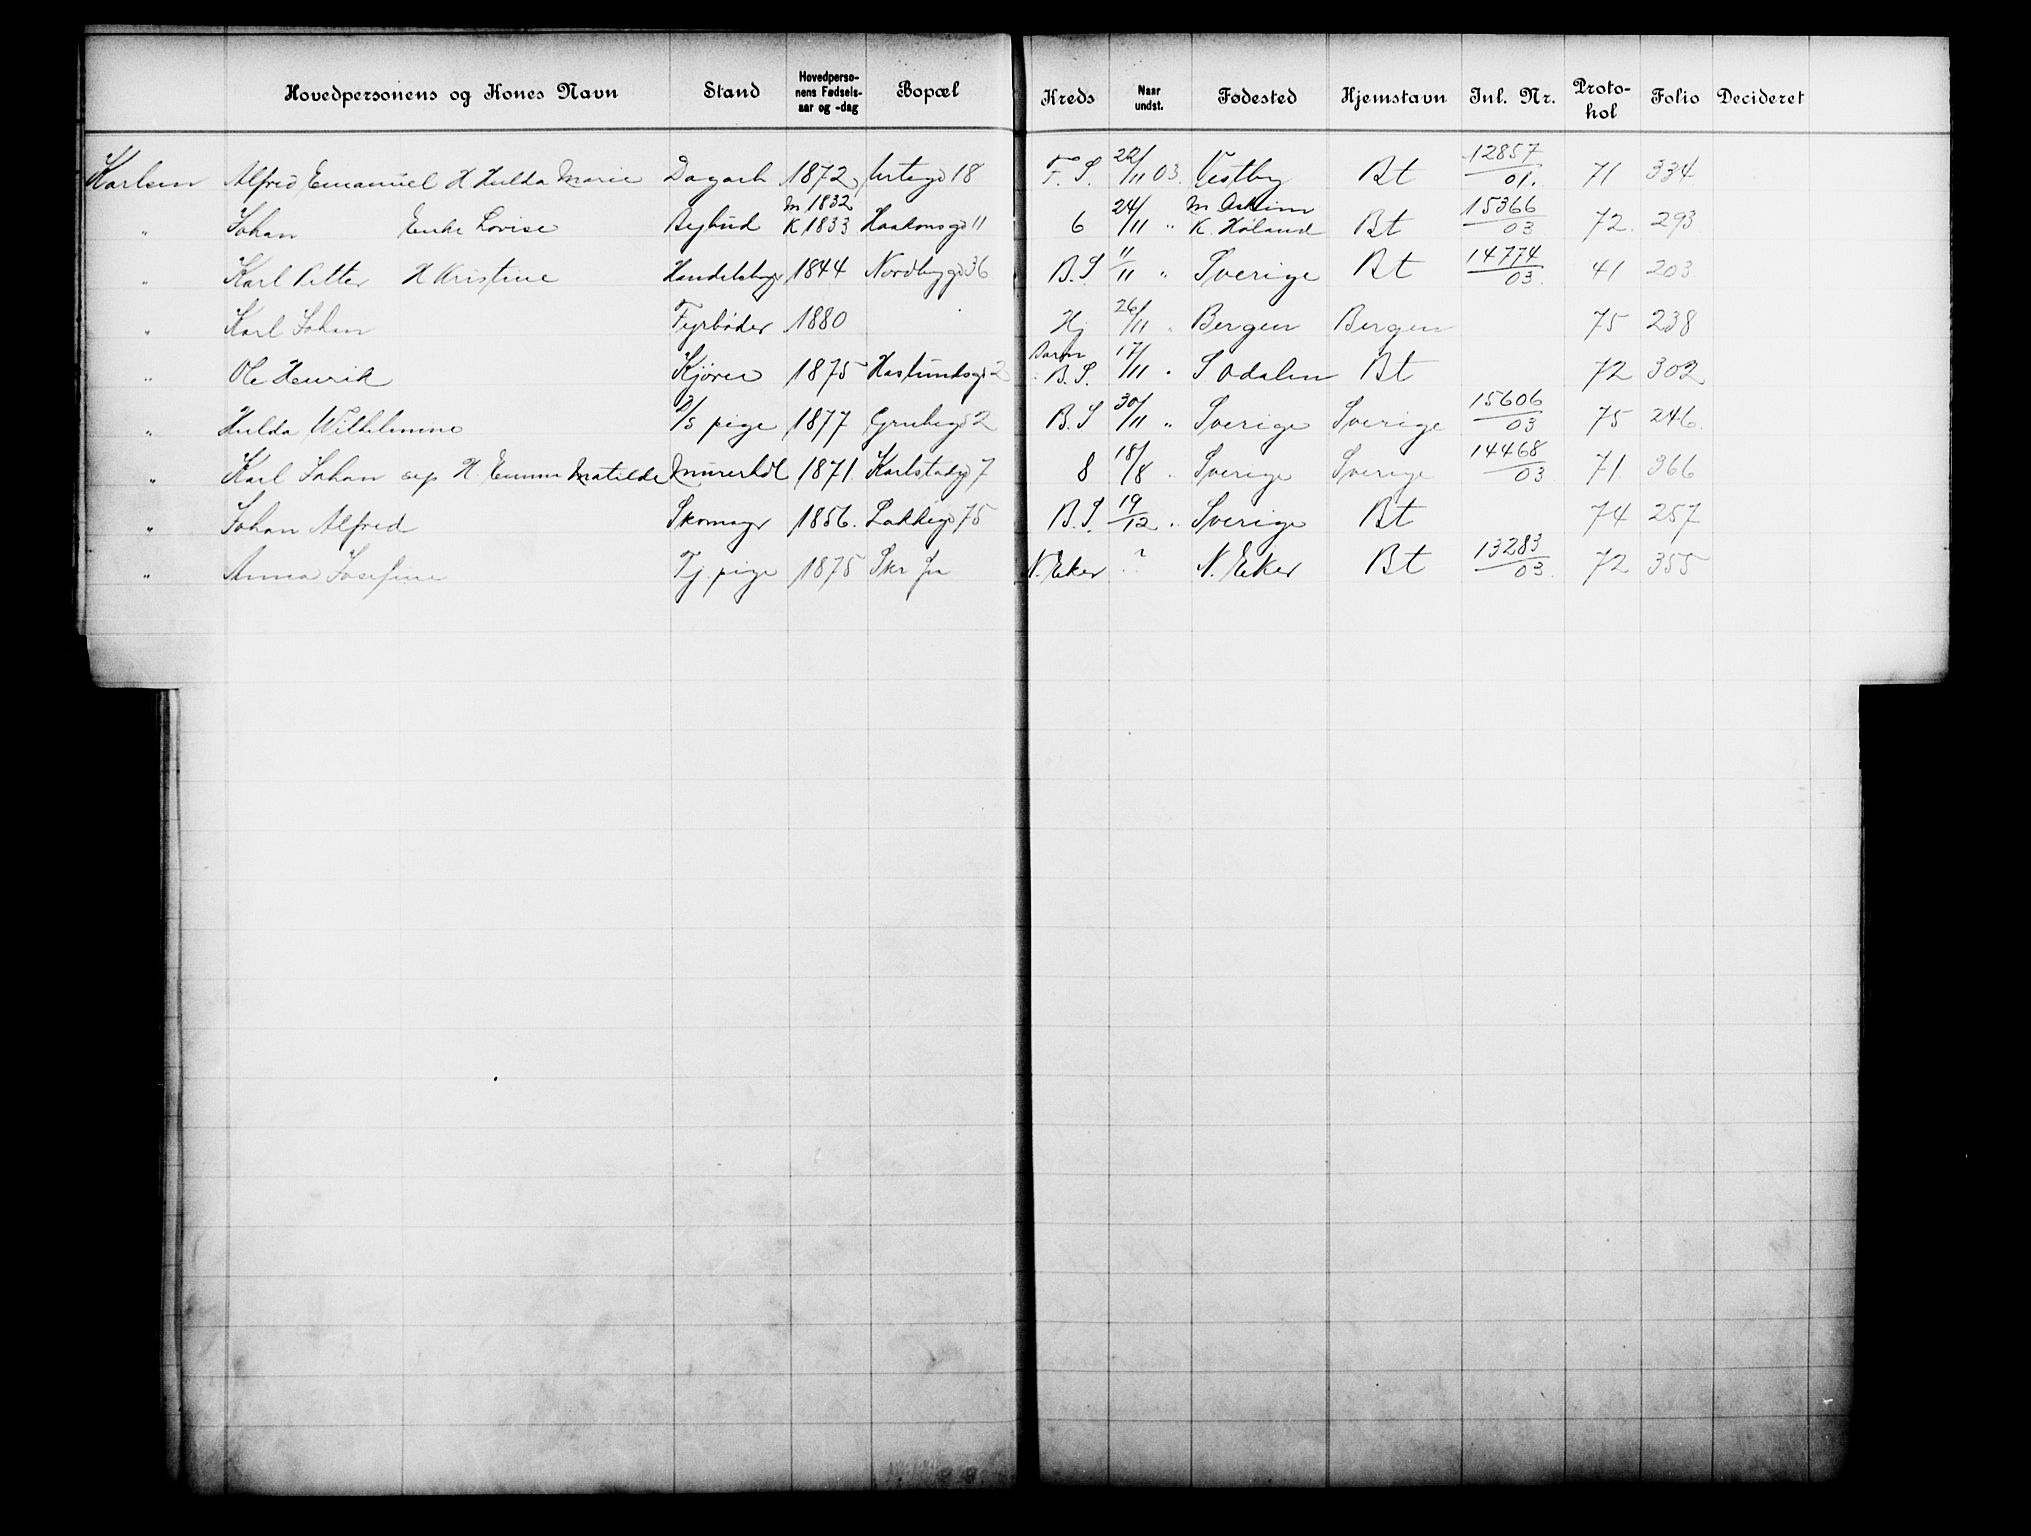 Hovedpersonens og Kones Navn Stand Hovedperso-nens Fødsels-aar og -dag Bopæl Kreds Naar undst. Fødested Hjemstavn Inl. Nr. Proto-kol Folio Decideret
Karlsen Alfred Emanuel H Hulda Marie Dagarb 1872 Urtegd 18 F. S. 22/11 03. Vestby Bt 12857/01. 71 334
" Johan Enke Lovise Bybud M 1832 K 1833 Haakonsgd 11 6 24/11 " M Askim K. Høland Bt 15366/03 72. 293
" Karl Petter H Kristine Handelsbgr 1844 Nordbyggd 36 B. S. 11/11 " Sverige Bt 14774/03. 41 203
" Karl Johan Fyrbøder 1880 Hj 26/11 " Bergen Bergen 75 238
" Ole Henrik Kjører 1875 Haslundsgd 2 Barn B. S. 17/11 " S Odalen Bt 72 302
" Hulda Wilhelmine pige 1877 Grubegd 2 B. S 30/11 " Sverige Sverige 15606/03 75 246.
" Karl Johan sep H. Emma Matilde Murerhdl 1871. Karlstadgd 7 8 18/8 " Sverige Sverige 14468/03 71. 366
" Johan Alfred Skomagr 1856. Lakkegd 75 B. S. 19/12 " Sverige Bt 74 257
" Anna Josefine Tj. pige 1875 N. Eker ? N. Eker Bt 13283/03. 72 355